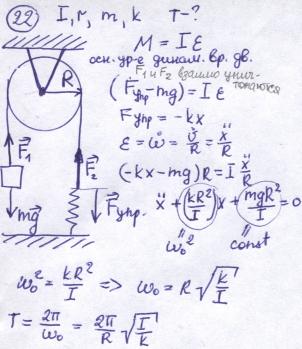 22 I, r, m, k T-?
M = Iε
осн. ур-е динам. вр. дв.
F₁ и F₂ взаимо унич-
тожаются
(Fупр - mg) = Iε
Fупр = -kx
ε = ω̇ = v̇/R = ẍ/R
(-kx - mg)R = I ẍ/R
ẍ + (kR²/I)x + (mgR²/I) = 0
ω₀² const
R
F⃗₁
F⃗₂
mg⃗
F⃗упр.
ω₀² = kR²/I => ω₀ = R√(k/I)
T = 2π/ω₀ = 2π/R √(I/k)